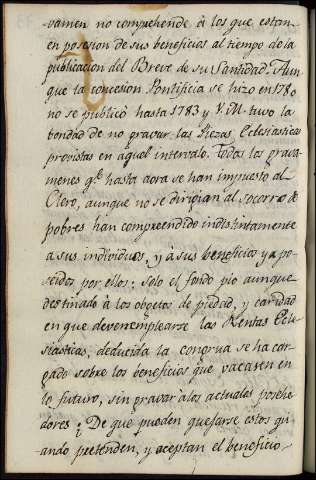 vamen no comprehende à los que estan
en posesion de sus beneficios al tiempo de la
publicacion del Breve de su Santidad. Aun
que la concesion Pontificia se hizo en 1780
no se publicò hasta 1783 y V. M. tuvo la
bondad de no gravar las Piezas Eclesiasticas
provistas en aquel intervalo. Todos los grava
menes q.e hasta aora se han impuesto al
Clero, aunque no se dirigian al socorro de
pobres han compreendido indistintamente
a sus individuos, y à sus beneficios ya po-
seidos por ellos: solo el fondo pio aunque
destinado à los objetos de piedad, y caridad
en que deven emplearse las Rentas Ecle-
siasticas, deducida la congrua se ha car-
gado sobre los beneficios que vacasen en
lo futuro, sin gravar à los actuales posehe-
dores ¿De que pueden quejarse estos qu
ando pretenden, y aceptan el beneficio